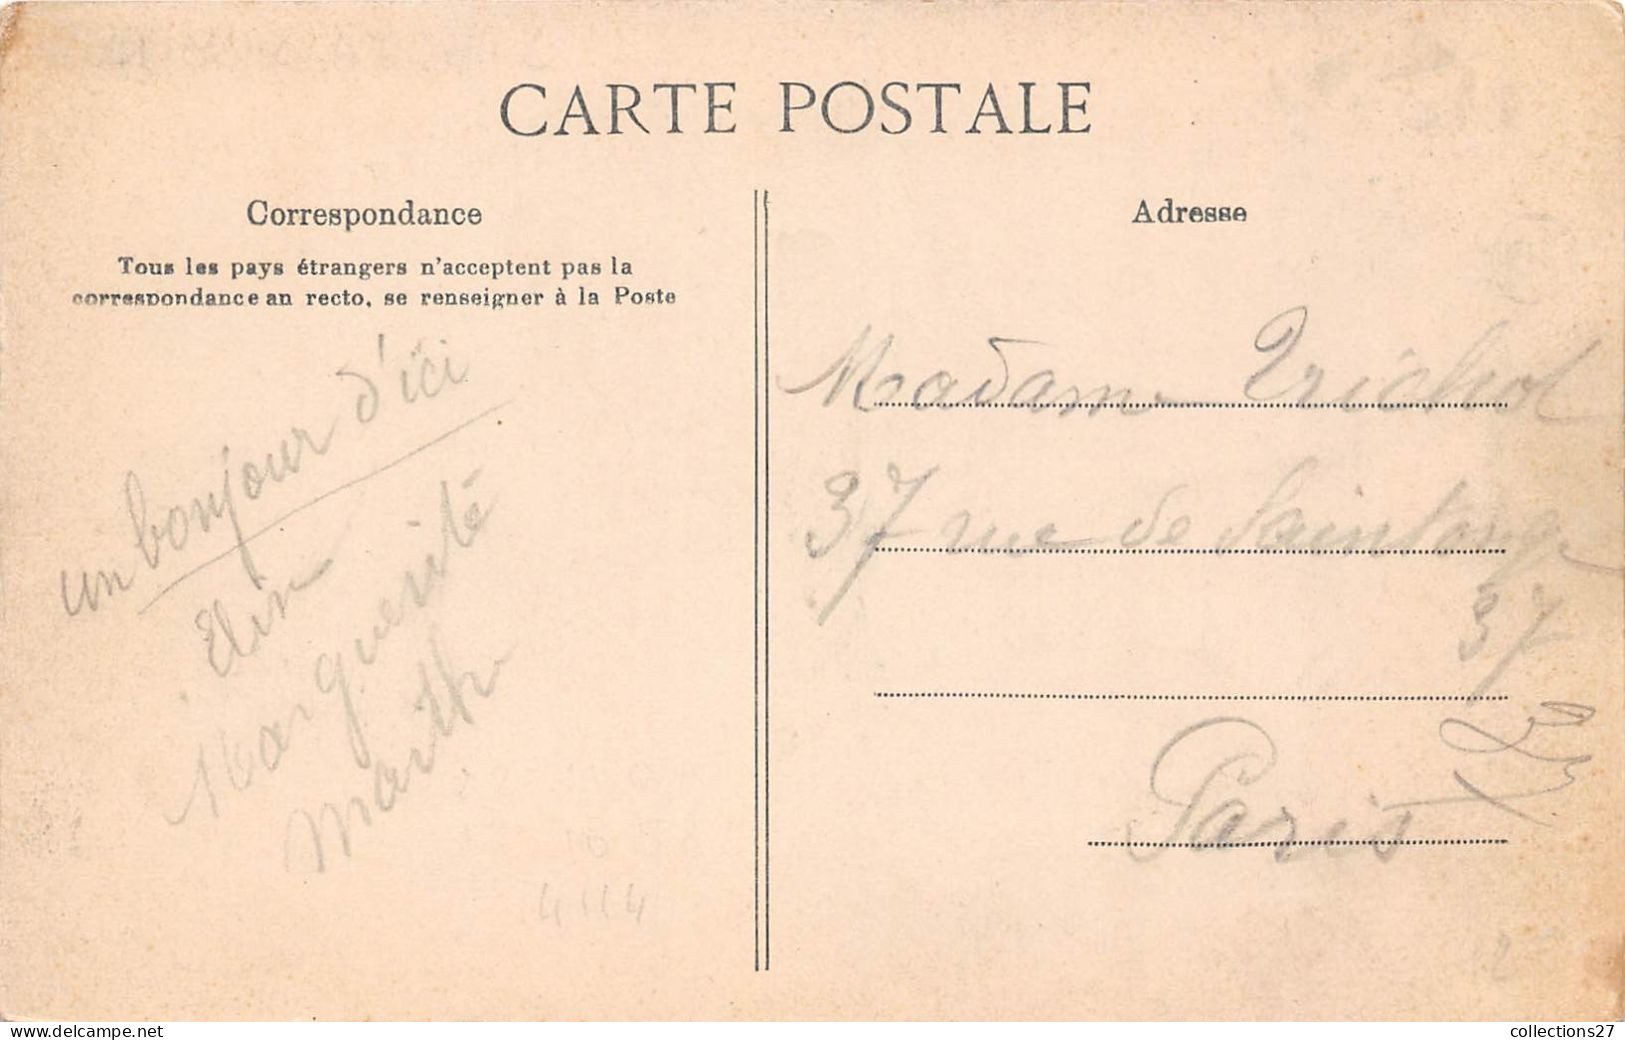 CARTE POSTALE
Correspondance
Tous les pays étrangers n'acceptent pas la
correspondance au recto, se renseigner à la Poste
un bonjour d'ici
Marguerite
Marth
4114
Adresse
Madame Trichot
37 rue de Saintonge
37
Paris
delcampe.net
collections27